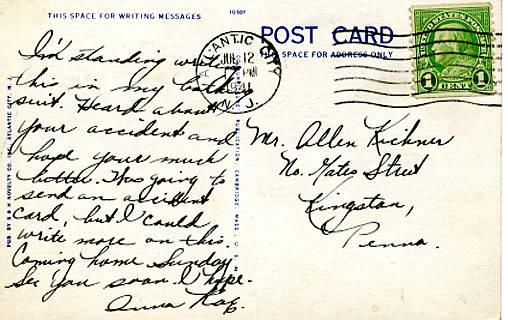 THIS SPACE FOR WRITING MESSAGES
POST CARD
THIS SPACE FOR ADDRESS ONLY
ATLANTIC CITY
JUL 12
PM
1941
N. J.
UNITED STATES POSTAGE
1 1
CENT
I'm standing
this in my bath
suit. Heard about
your accident and
hope your much
better. Was going to
send an accident
card, but I could
write more on this.
Coming home Sunday
See you soon I hope.
Anna Kay.
Mr. Allen Kichner
No. Gates Street
Kingston,
Penna.
PUB. BY NOVELTY CO. ATLANTIC CITY, N. J.
PUBLICATION, CAMBRIDGE, MASS.